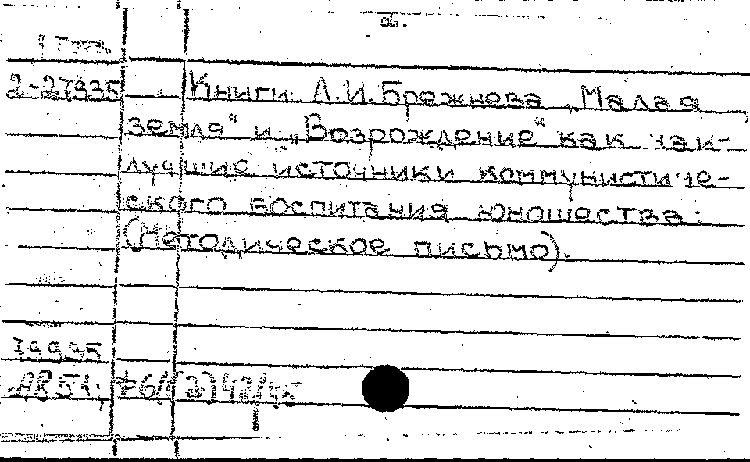 2-27335 Книги Л.И.Брежнева „Малая
земля“ и „Возрождение“ как наи-
лучшие источники коммунистиче-
ского воспитания юношества:
(Методическое письмо).